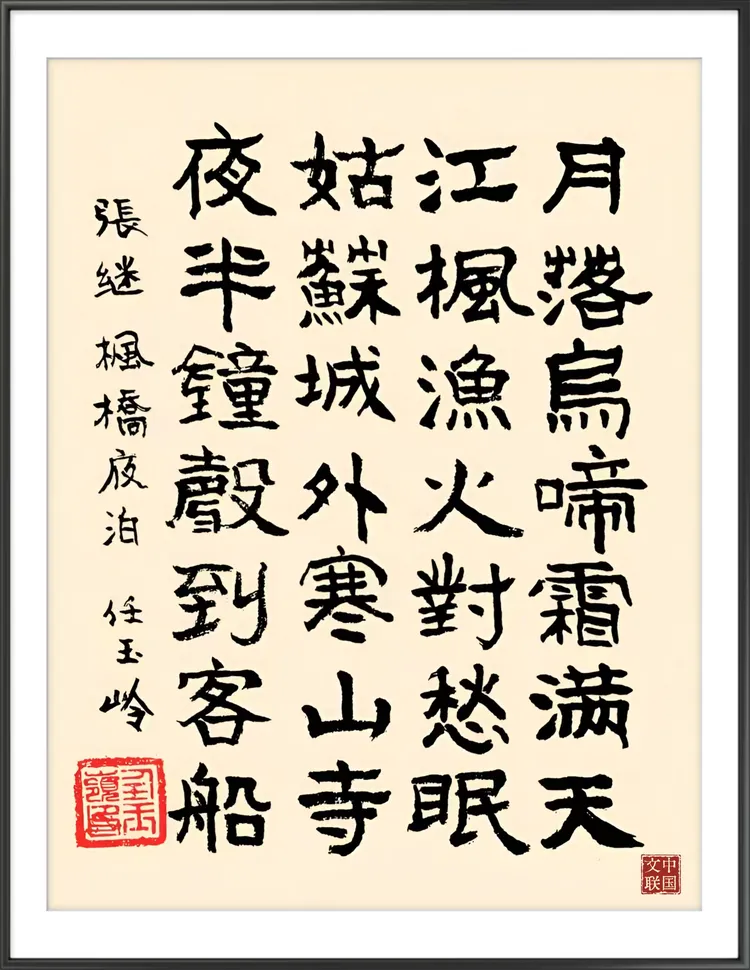 月落烏啼霜满天
江楓漁火對愁眠
姑蘇城外寒山寺
夜半鐘聲到客船
張继 楓橋夜泊 任玉岭
任玉嶺印
中国文联